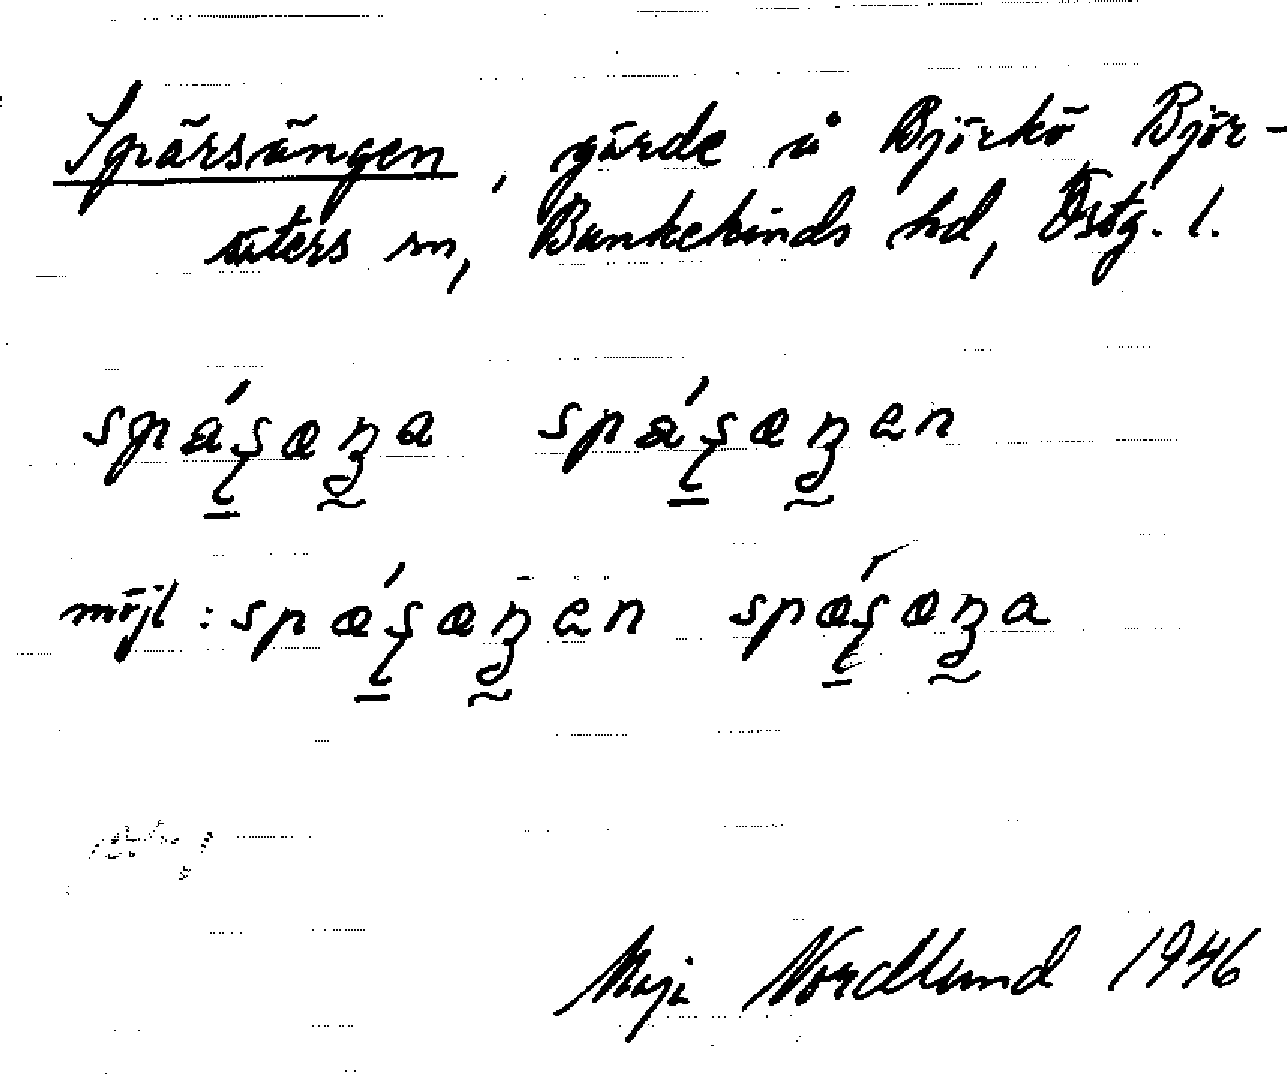 Spärsängen, gärde å Björkö Björ-
säters sn, Bankekinds hd, Östg. l.
spá̀ʂæŋa spáʂæŋen
möjl: spǽʂæŋen spǽʂæŋa
Maja Nordlund 1946